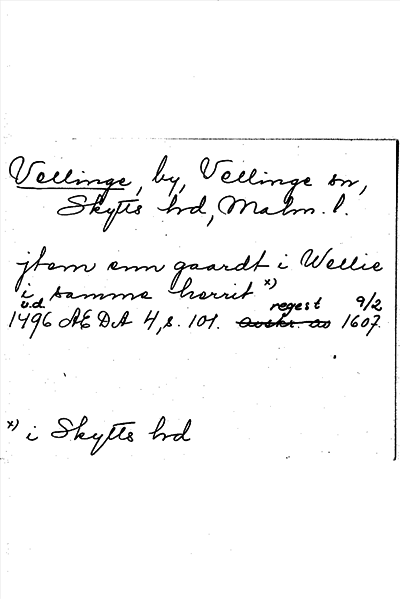 Vellinge, by, Vellinge sn,
Skytts hd, Malm. l.
jtem enn gaardt i Wellie
i samme herrit x)
u.d. regest 9/2
1496 AEDA 4, s. 101. avskr. av 1607.
x) i Skytts hd